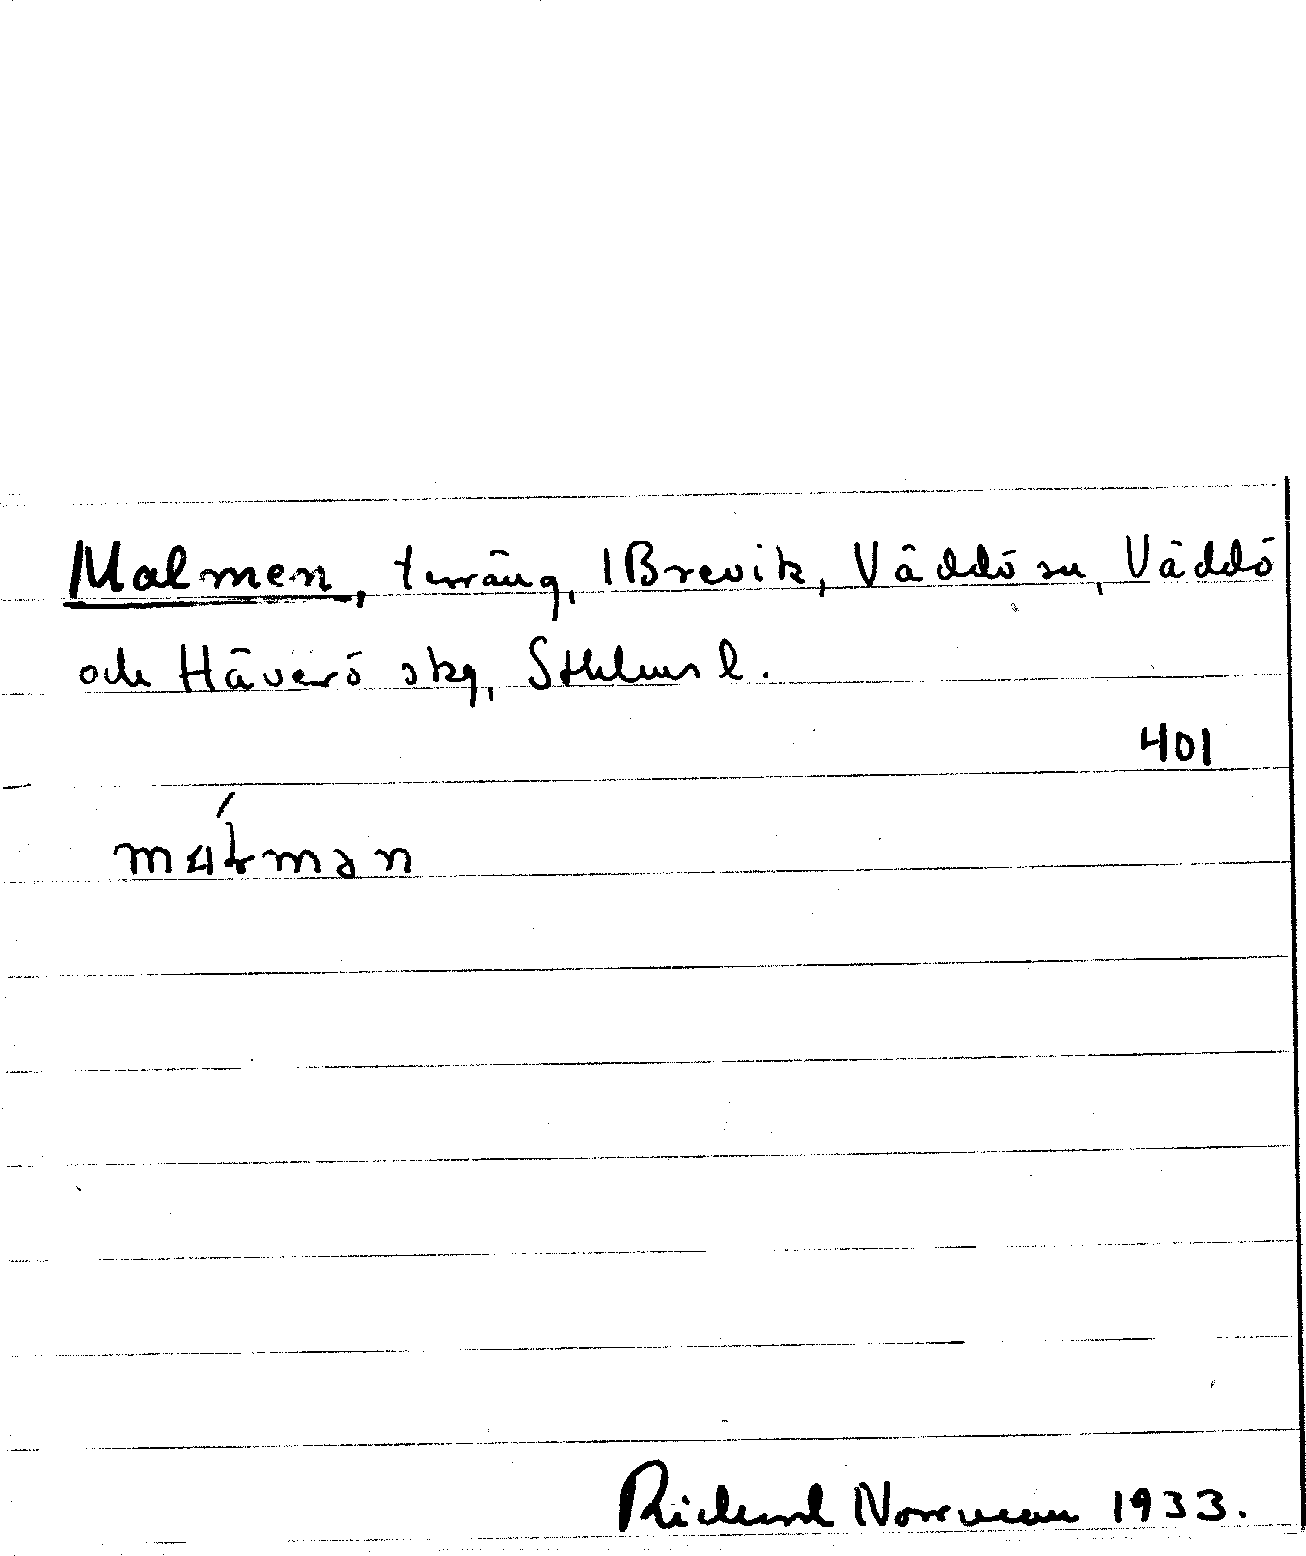 Malmen, terräng, 1 Brevik, Väddö sn, Väddö
och Häverö skg, Sthlms l.
401
Rickard Norrman 1933.